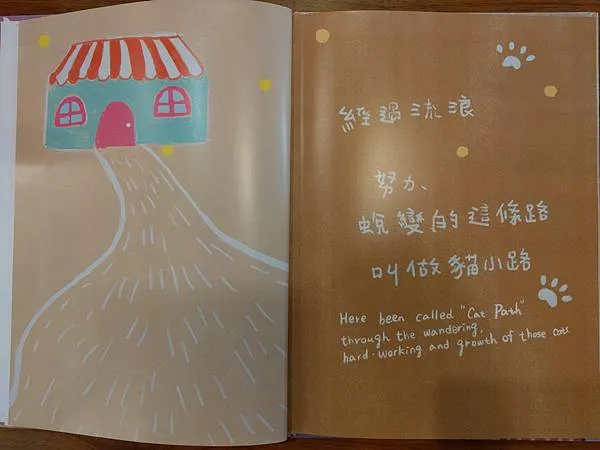 經過流浪
努力、
蛻變的這條路
叫做貓小路
Here been called "Cat Path"
through the wandering,
hard-working and growth of those cats